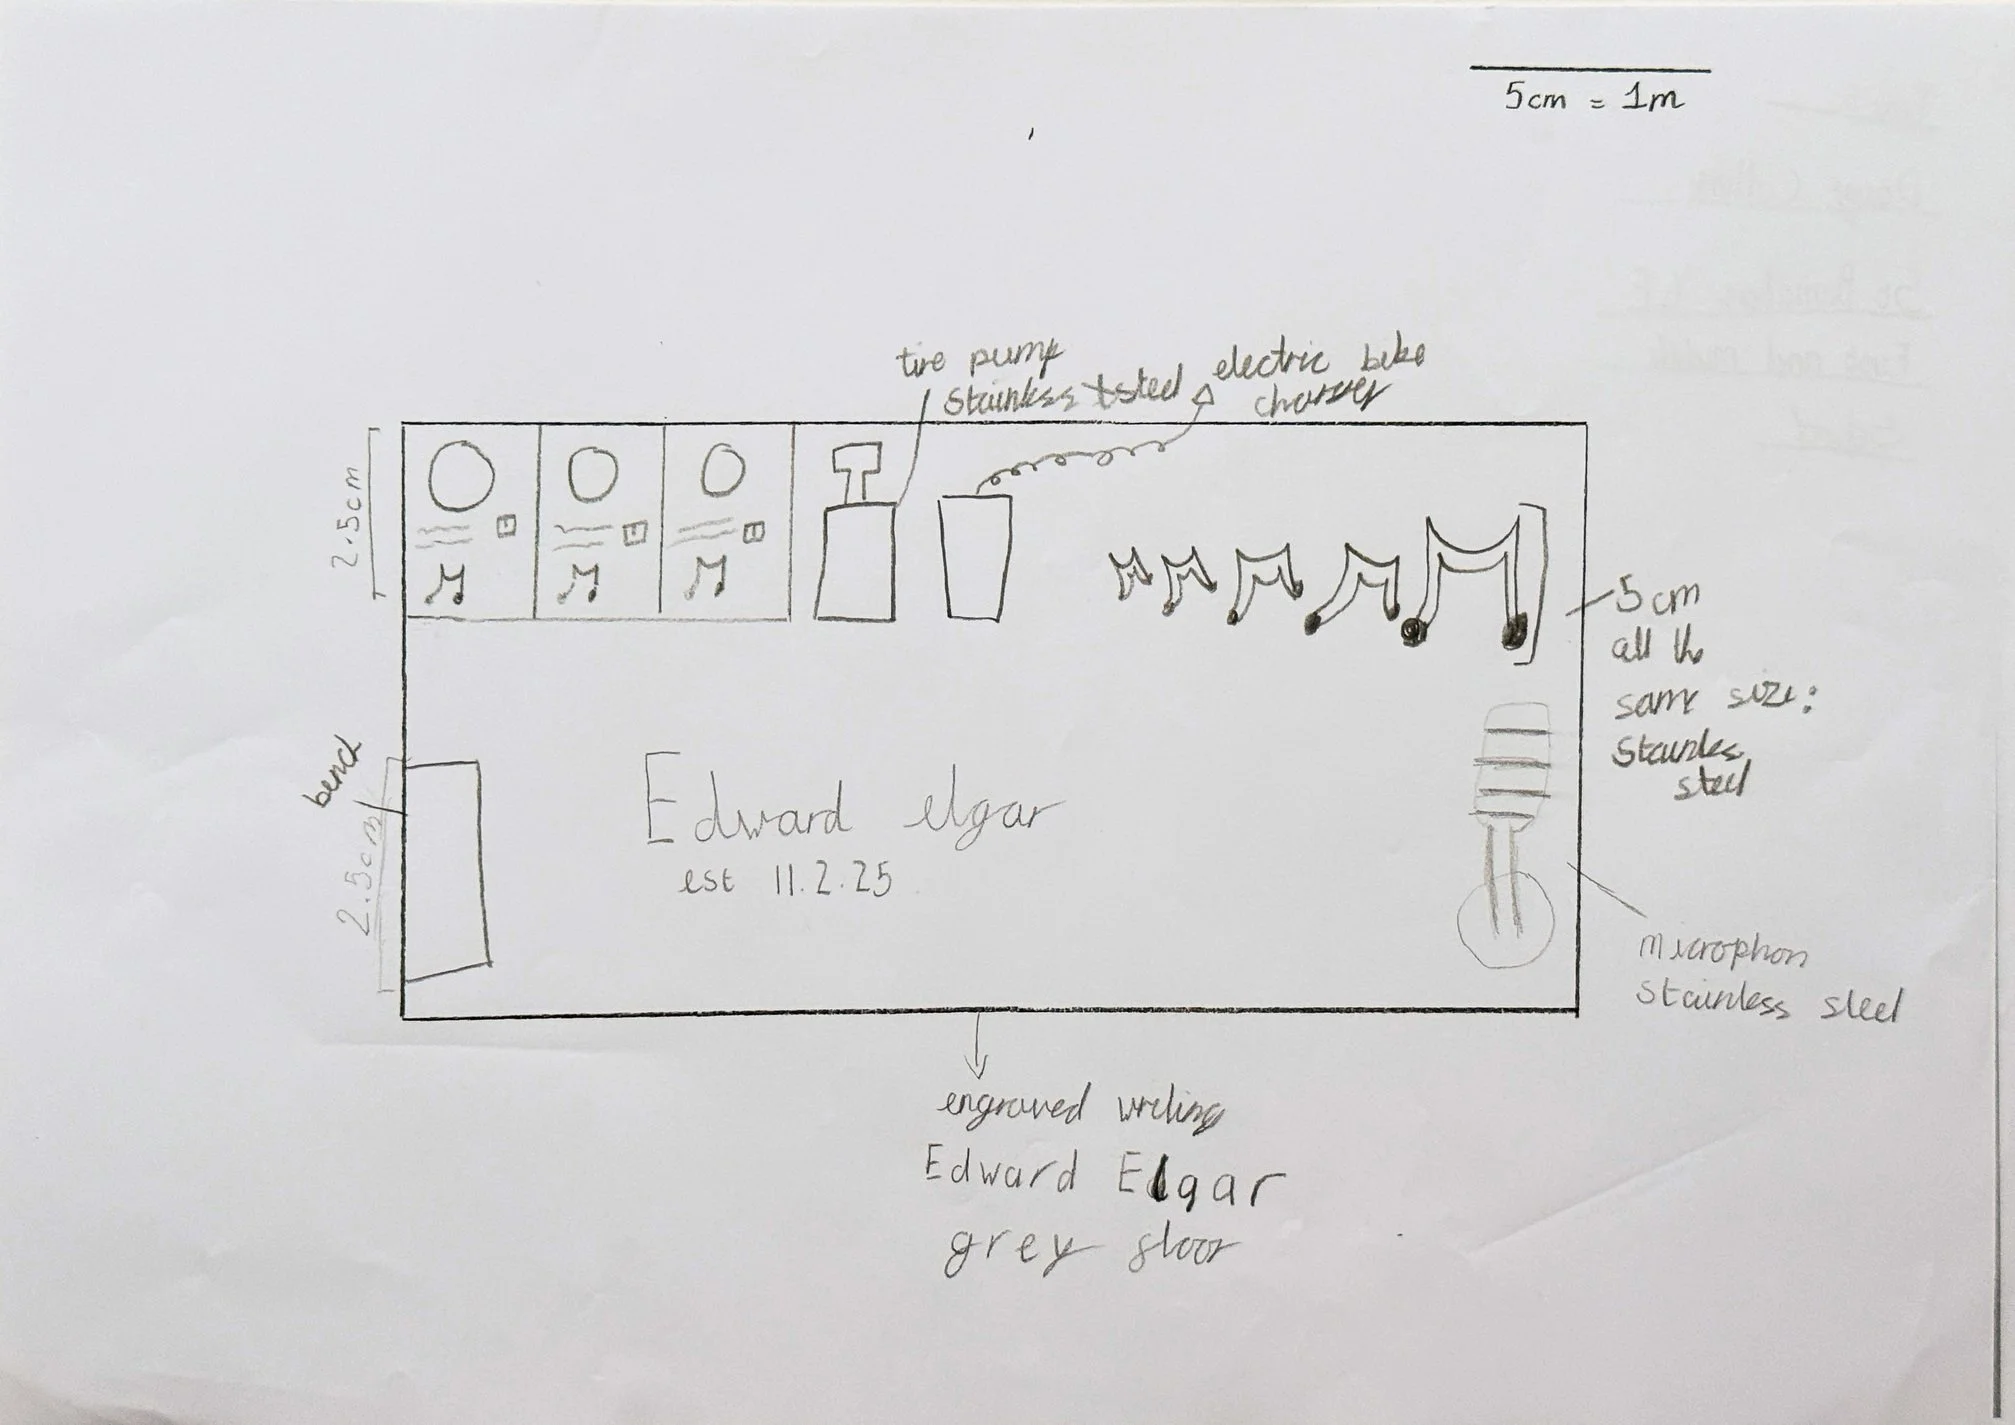 5cm = 1m
tire pump
stainless steel
electric bike
charger
2.5cm
5cm
all the
same size:
Stainles
steel
bench
2.5cm
Edward elgar
est 11.2.25
microphon
stainless steel
engraved writing
Edward Elgar
grey floor